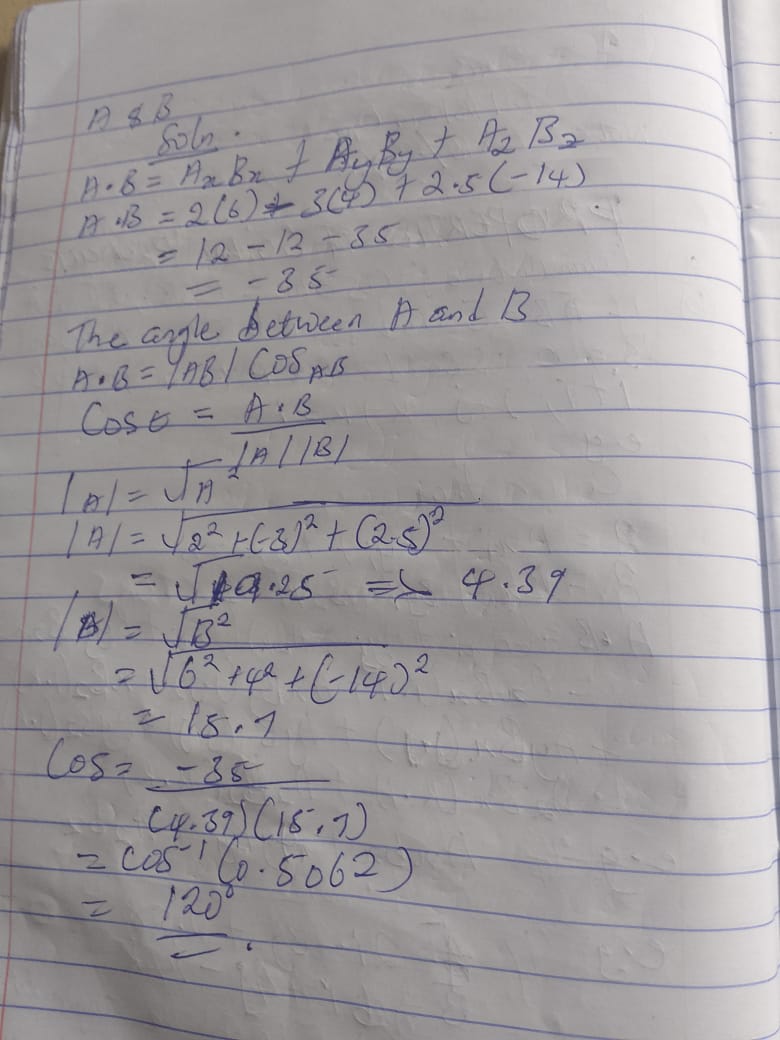 A & B
Soln.
A·B = AxBx + AyBy + AzBz
A·B = 2(6) - 3(4) + 2.5(-14)
= 12 - 12 - 35
= -35
The angle between A and B
A·B = |AB| Cos AB
Cos θ = A·B
|A||B|
|A| = √A²
|A| = √2² + (-3)² + (2.5)²
= √19.25 => 4.39
|B| = √B²
= √6² + 4² + (-14)²
= 15.7
Cos = -35
(4.39)(15.7)
= cos⁻¹ (0.5062)
= 120°